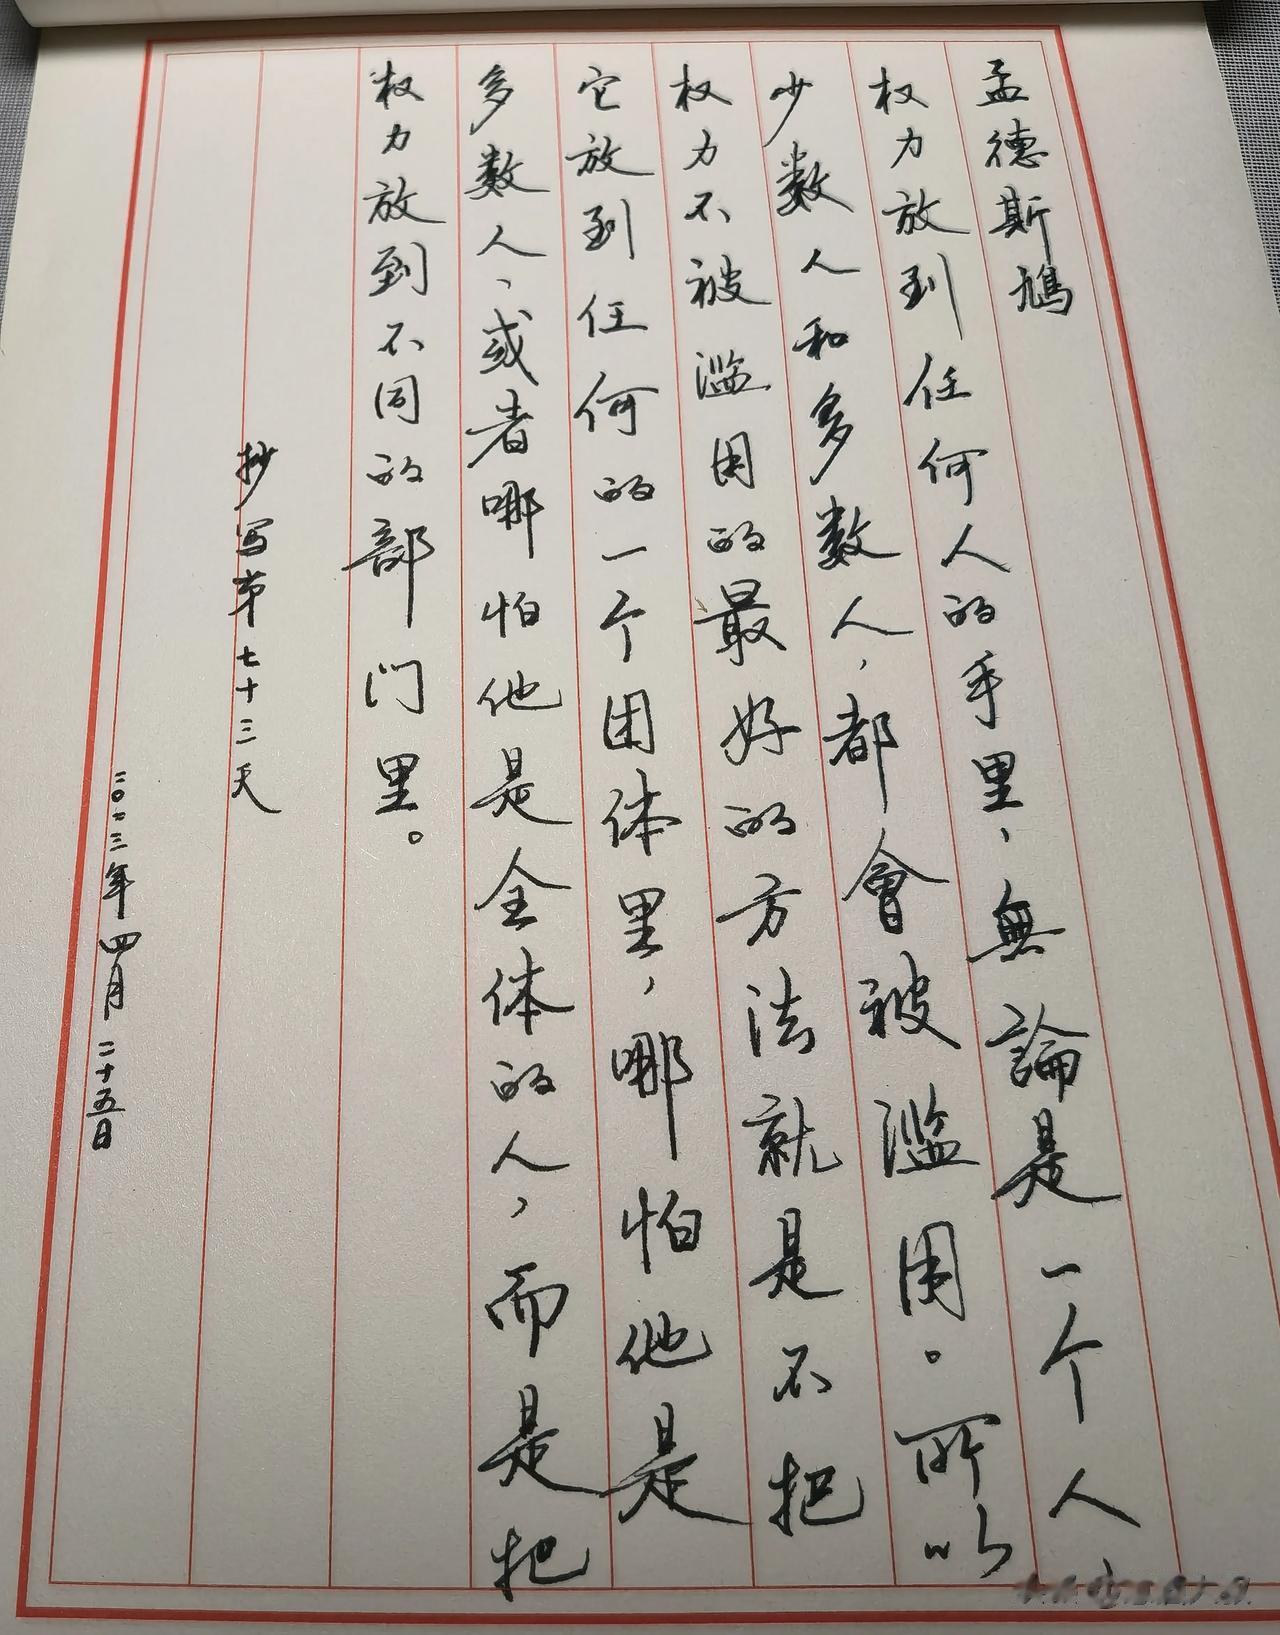 孟德斯鳩
权力放到任何人的手里，無論是一个人、
少数人和多数人，都會被滥用。所以
权力不被滥用的最好的方法就是不把
它放到任何的一个团体里，哪怕他是
多数人，或者哪怕他是全体的人，而是把
权力放到不同的部门里。
抄写第七十三天
二〇二三年四月二十五日